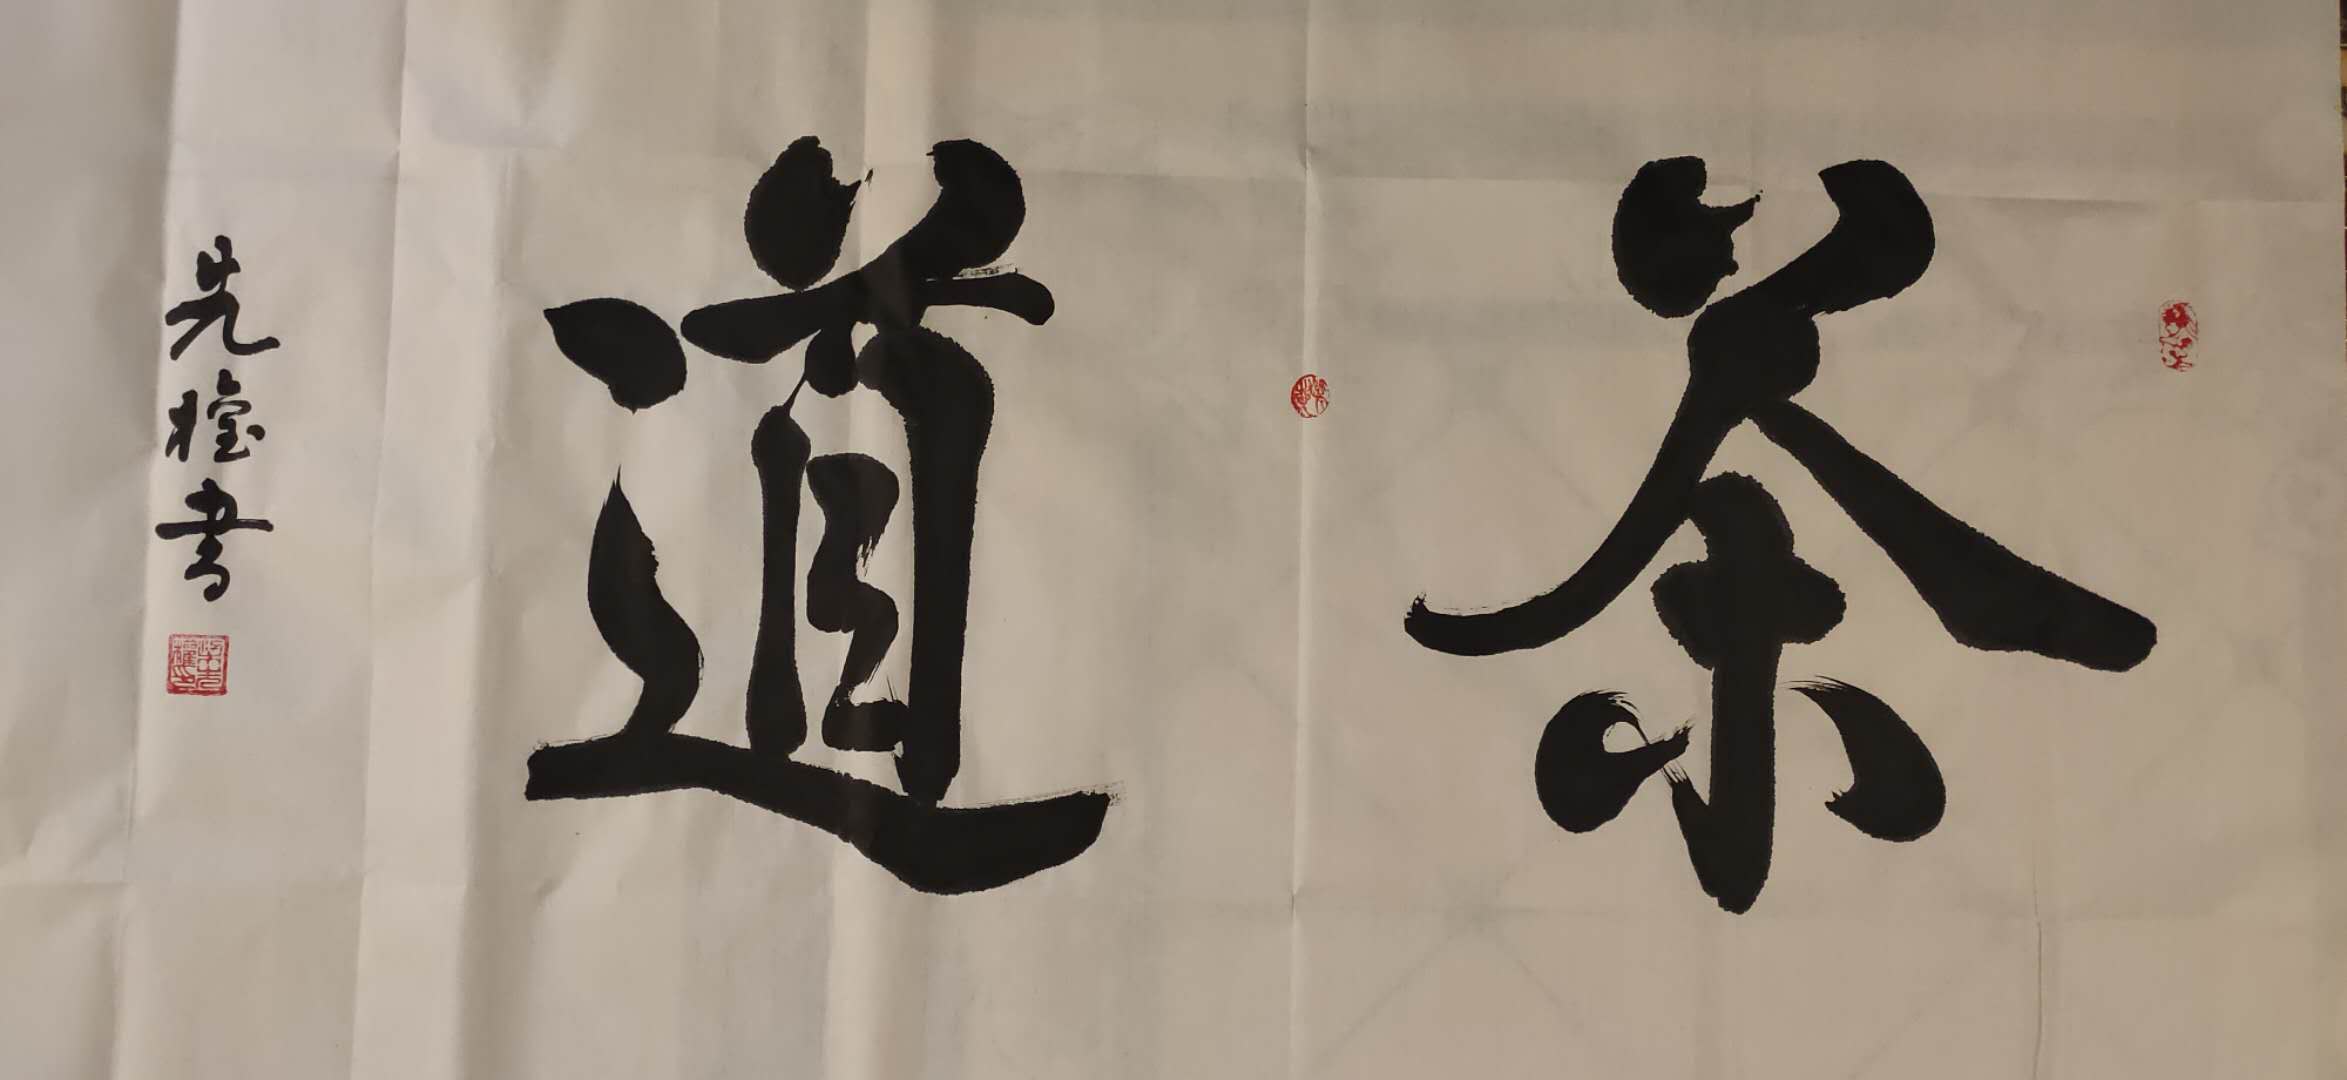 茶道
先权書